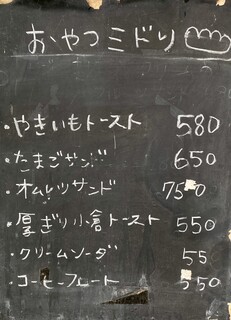 おやつミドリ
・やきいもトースト 580
・たまごサンド 650
・オムレツサンド 750
・厚ぎり小倉トースト 550
・クリームソーダ 55
・コーヒーフロート 550